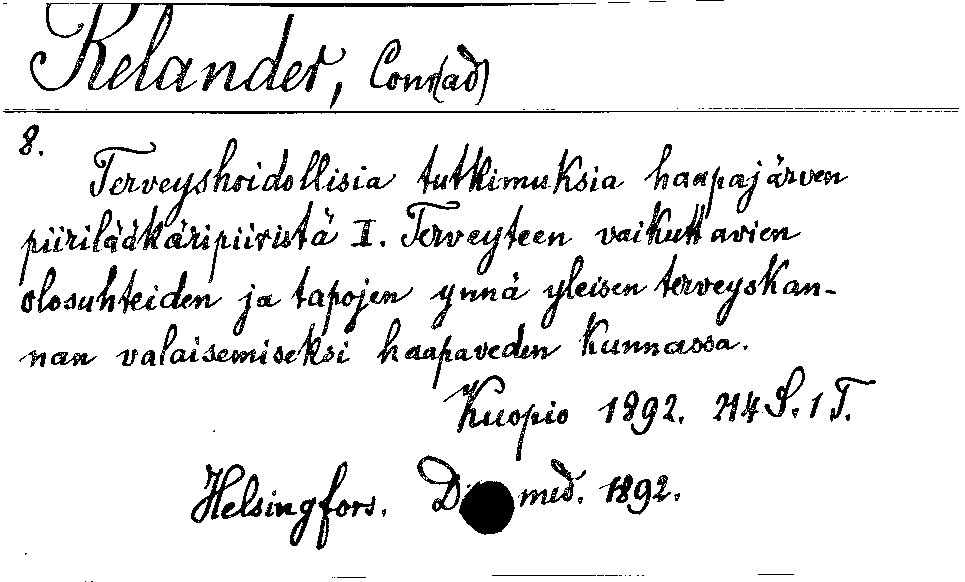 Relander, Con(rad)
8.
Terveyshoidollisia tutkimuksia haapajärven
piirilääkäripiiristä II. Terveyteen vaikuttavien
olosuhteiden ja tapojen ynnä yleisen terveyskan-
nan valaisemiseksi haapaveden Kunnassa.
Kuopio 1892. 214 S. 1 T.
Helsingfors. med. 1892.